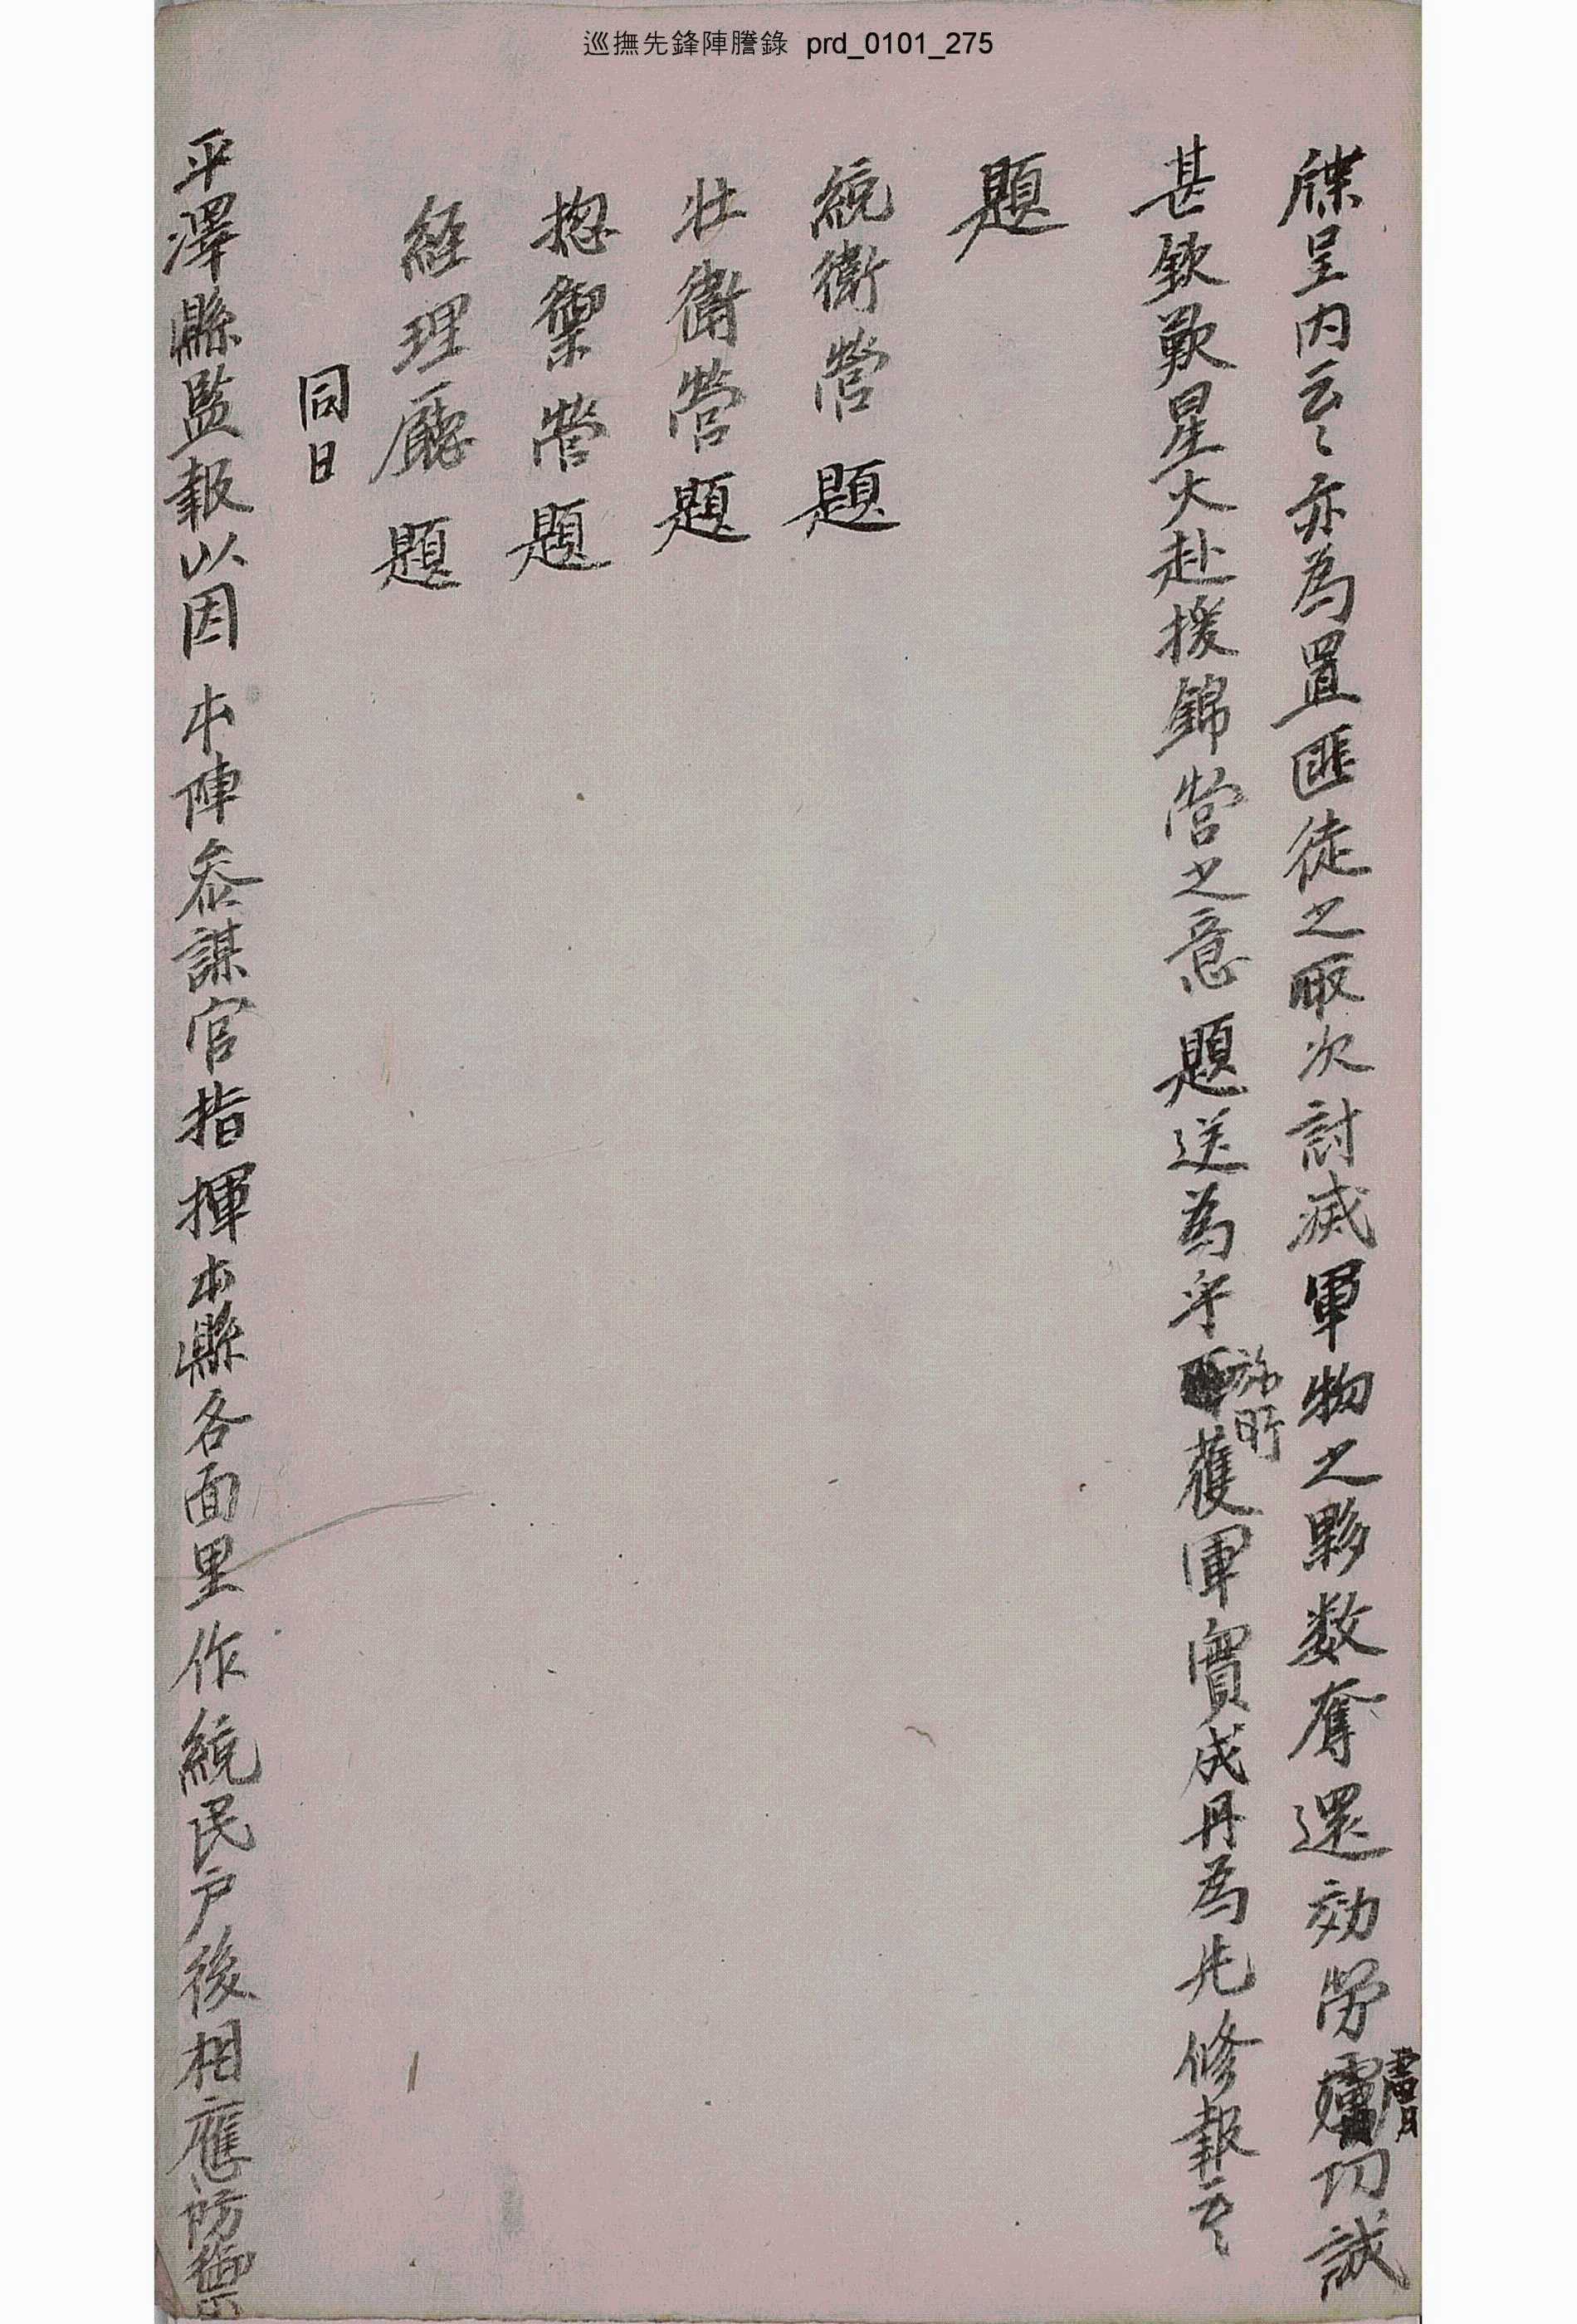 巡撫先鋒陣謄錄 prd_0101_275
牒呈內云〻亦爲置匪徒之取次討滅軍物之夥数奪還効勞膚功誠
甚欽歎星火赴援錦營之意題送爲乎旀所獲軍實成冊爲先修報云〻
題
統衛營題
壯衛營題
摠禦營題
経理廳題
同日
平澤縣監報以因本陣叅謀官指揮本縣各面里作統民戶後相應防禦